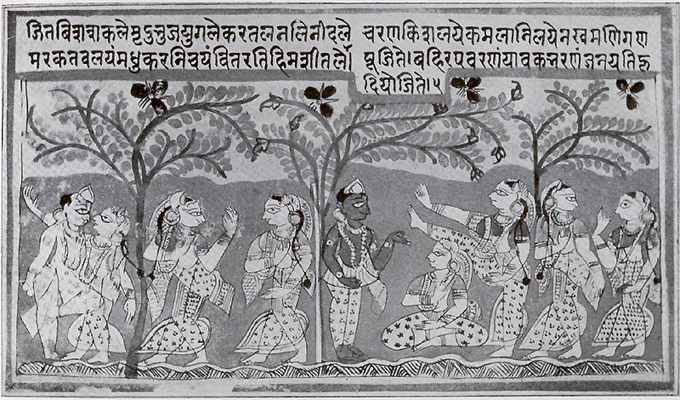 जितविशशकले मृदुभुजयुगले करतलनलिनीदले
मरकतवलयं मधुकरनिचयं वितरति हिमशीतले
चरणकिशलये कमलानिलये नखमणिगण
पूजिते। बहिरपवरणं यावकभरणं जनयति हृ
दि योजिते। ५